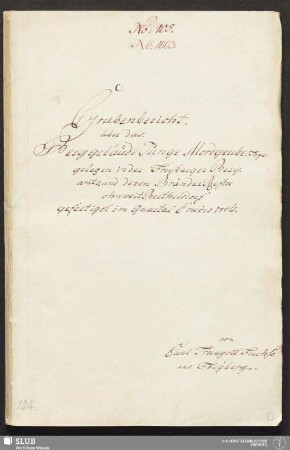 No: 103.
No: 1003.
Grubenbericht.
über das.
Berggebäude Junge Mordgrube
gelegen in der Freyberger Berg
amts und deren Bränder Refier
ohnweit Berthelsdorf
gefertiget im Quartal Crucis
von
Carl Traugott
aus Freyberg.
104.
SLUB
Wir führen Wissen.
UNIVERSITÄTSBIBLIOTHEK
FREIBERG